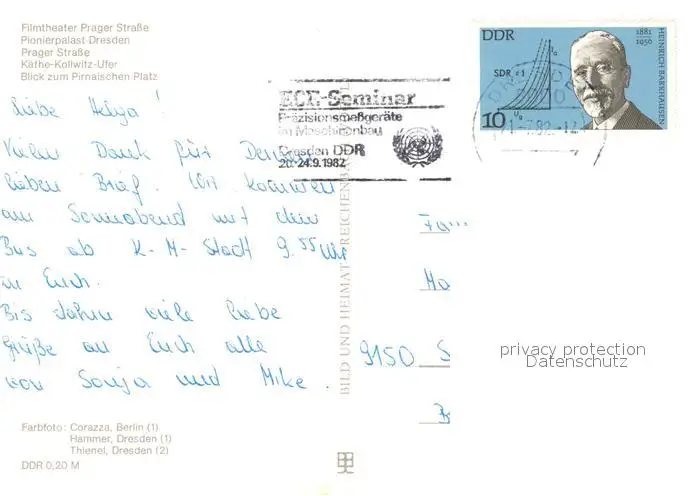 Filmtheater Prager Straße
Pionierpalast Dresden
Prager Straße
Käthe-Kollwitz-Ufer
Blick zum Pirnaischen Platz
Liebe Helga!
Vielen Dank für Deinen
lieben Brief. Wir kommen
am Sonnabend mit dem
Bus ab K-M-Stadt 9.55 Uhr
zu Euch.
Bis dahin viele liebe
Grüße an Euch alle
von Sonja und Mike.
Farbfoto: Corazza, Berlin (1)
Hammer, Dresden (1)
Thienel, Dresden (2)
DDR 0,20 M
BILD UND HEIMAT REICHENBACH
ECE-Seminar
Präzisionsmeßgeräte
im Maschinenbau
Dresden DDR
20.-24.9.1982
DDR
1881
1956
HEINRICH BARKHAUSEN
SDR = 1
Ia
Ug
10
Fa
9150 S
privacy protection
Datenschutz